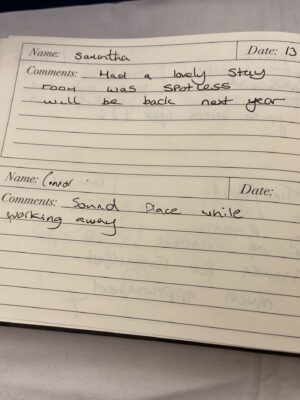 Name: Samantha Date: 13
Comments: Had a lovely stay
room was spotless
will be back next year
Name: Connor Date:
Comments: Sound Place while
working away